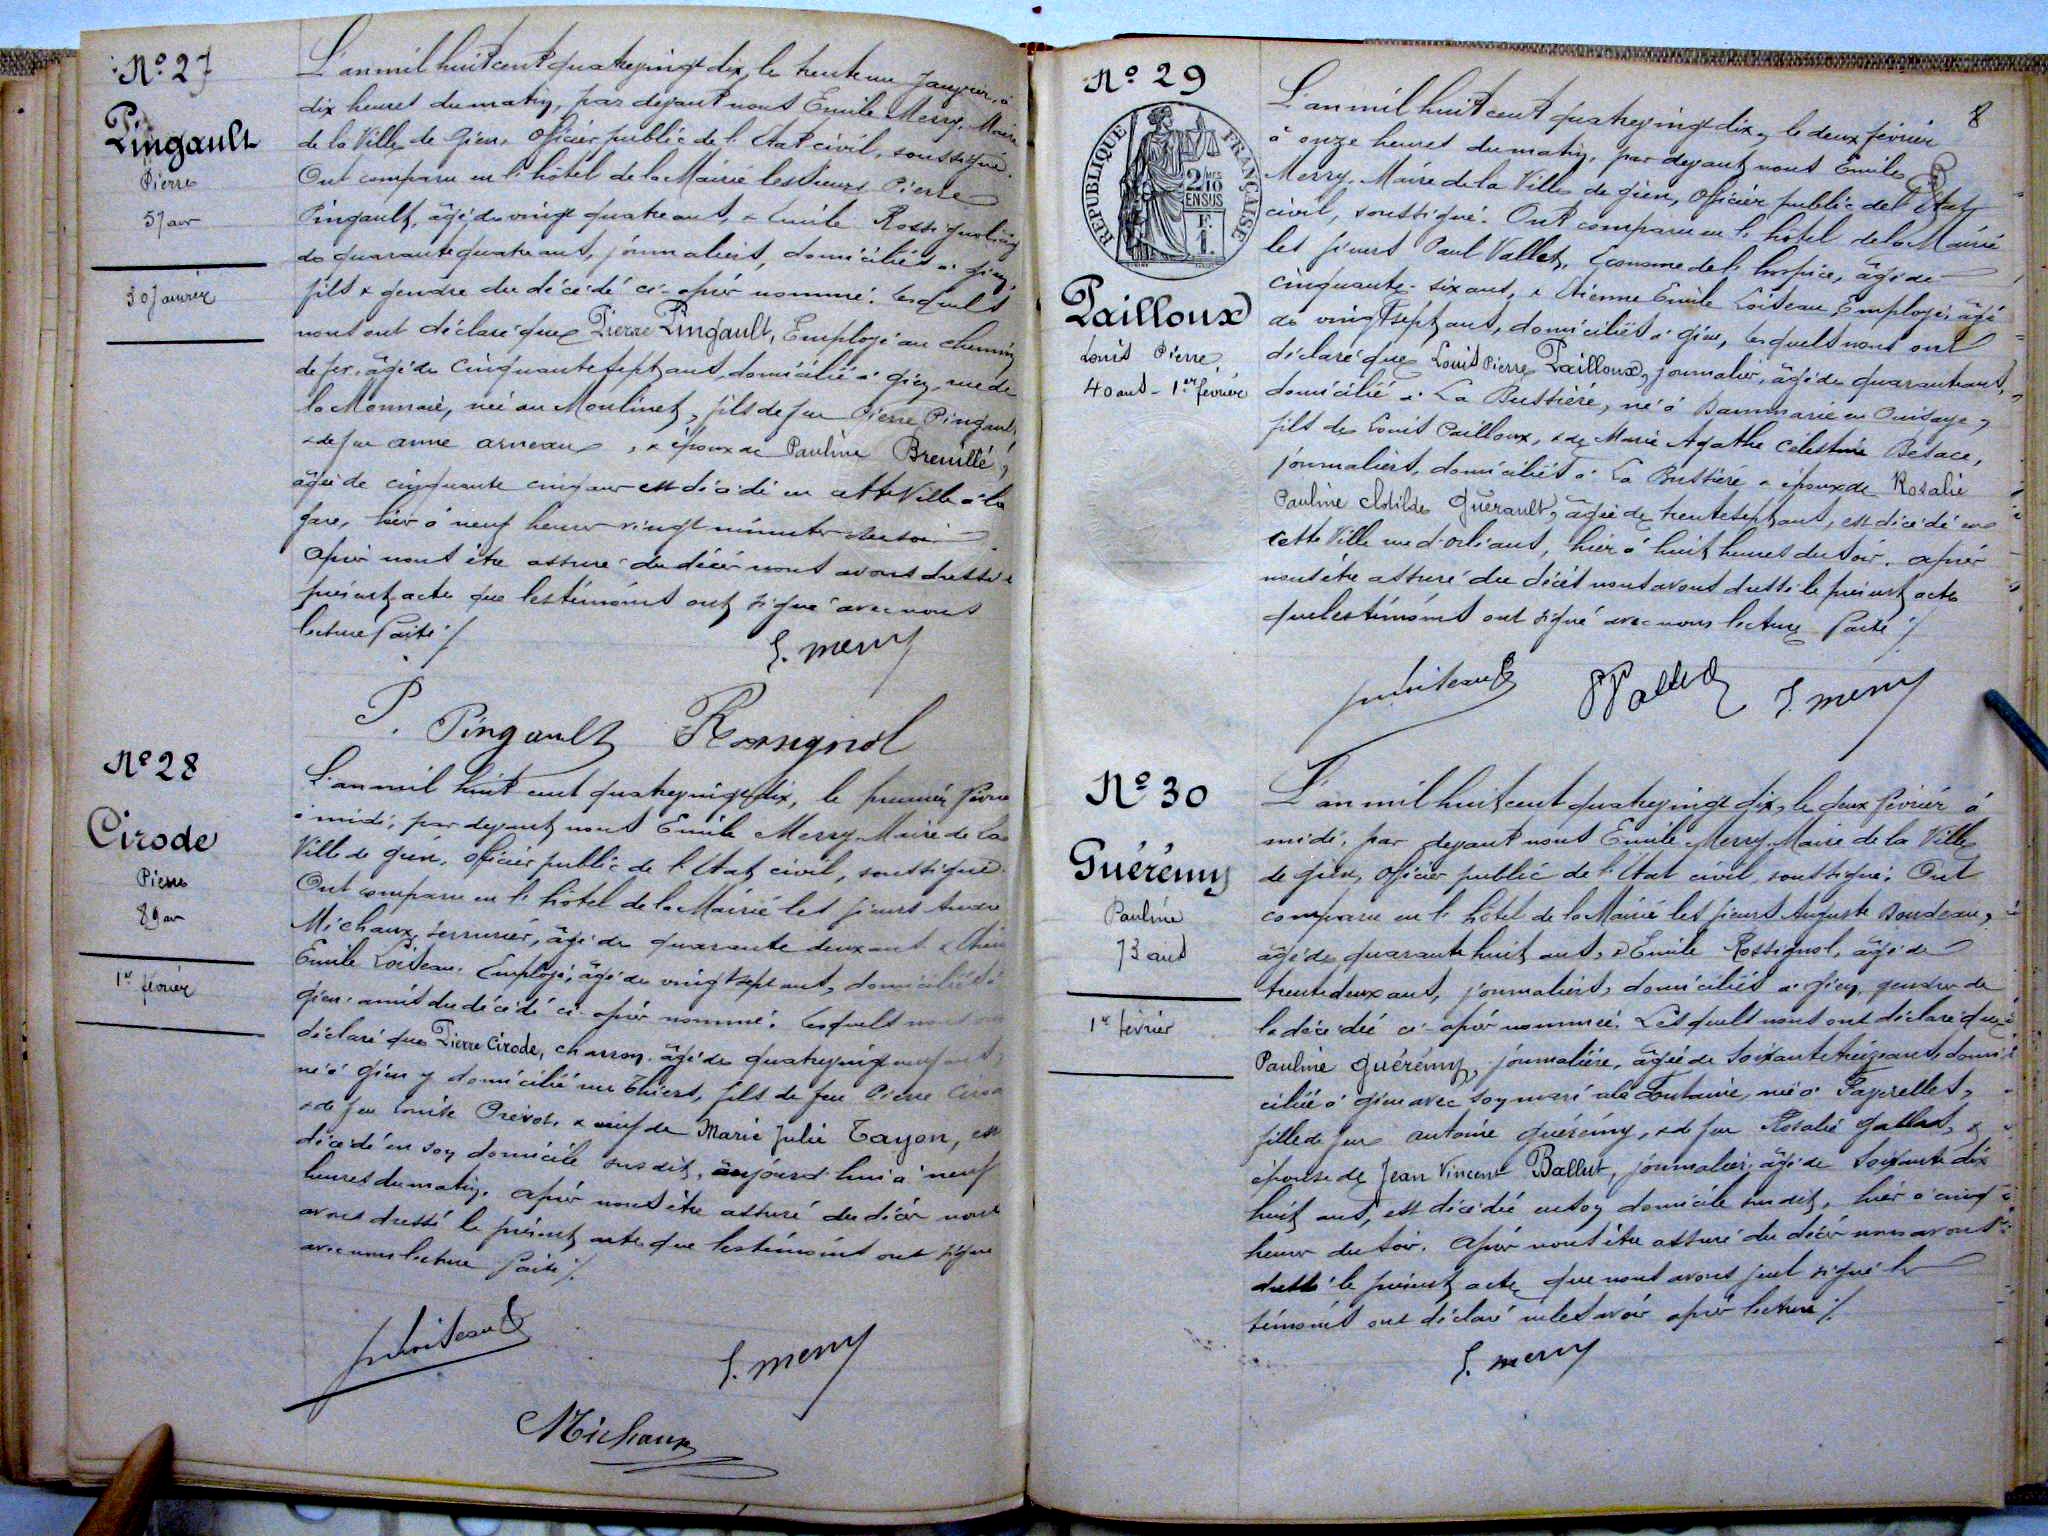 No 27
Pingault
Pierre
57 ans
30 Janvier
L'an mil huit cent quatrevingt dix, le trente un Janvier, à
dix heures du matin, par devant nous Emile Merry, Maire
de la Ville de Gien, Officier public de l'Etat civil, soussigné.
Ont comparu en l'hôtel de la Mairie les sieurs Pierre
Pingault, âgé de vingt quatre ans, & Emile Rossignol
de quarante quatre ans, journaliers, domiciliés à Gien,
fils & gendre du décédé ci-après nommé. Lesquels
nous ont déclaré que Pierre Pingault, Employé au chemin
de fer, âgé de cinquante sept ans, domicilié à Gien, rue de
la Monnaie, né au Moulinet, fils de feu Pierre Pingault
& de feu anne arneau, & époux de Pauline Breuillé,
âgée de cinquante cinq ans est décédé en cette Ville à la
gare, hier à neuf heures vingt minutes du soir
Après nous être assuré du décès nous avons dressé le
présent acte que les témoins ont signé avec nous
lecture faite ./.
E. Merry
P. Pingault Rossignol
No 28
Cirode
Pierre
89 ans
1er février
L'an mil huit cent quatrevingt dix, le premier février
à midi, par devant nous Emile Merry Maire de la
Ville de Gien, officier public de l'Etat civil, soussigné.
Ont comparu en l'hôtel de la Mairie les sieurs André
Michaux, serrurier, âgé de quarante deux ans & Etienne
Emile Loiseau, Employé, âgé de vingt sept ans, domiciliés à
Gien, amis du décédé ci-après nommé. Lesquels nous ont
déclaré que Pierre Cirode, charron, âgé de quatrevingt neuf ans,
né à Gien y domicilié rue Thiers, fils de feu Pierre Cirode
& de feu Louise Prévot, & veuf de Marie Julie Tayon, est
décédé en son domicile susdit, aujourd'hui à neuf
heures du matin. Après nous être assuré du décès nous
avons dressé le présent acte que les témoins ont signé
avec nous lecture faite ./.
Loiseau E. Merry
Michaux
8
No 29
RÉPUBLIQUE FRANÇAISE
2/10 EN SUS
F. 1.
Pailloux
Louis Pierre
40 ans - 1er février
L'an mil huit cent quatrevingt dix, le deux février
à onze heures du matin, par devant nous Emile
Merry, Maire de la Ville de Gien, Officier public de l'Etat
civil, soussigné. Ont comparu en l'hôtel de la Mairie
les sieurs Paul Vallet, Econome de l'hospice, âgé de
cinquante-six ans, & Etienne Emile Loiseau Employé, âgé
de vingt sept ans, domiciliés à Gien, lesquels nous ont
déclaré que Louis Pierre Pailloux, journalier, âgé de quarante ans,
domicilié à La Bussière, né à Dammarie en Puisaye,
fils de Louis Pailloux, & de Marie Agathe Celestine Besace,
journaliers, domiciliés à La Bussière & époux de Rosalie
Pauline Clotilde Guérault, âgée de trente sept ans, est décédé en
cette Ville rue d'orléans, hier à huit heures du soir. Après
nous être assuré du décès nous avons dressé le présent acte
que les témoins ont signé avec nous lecture faite ./.
Loiseau P Vallet E. Merry
No 30
Guérémy
Pauline
73 ans
1er février
L'an mil huit cent quatrevingt dix, le deux février à
midi, par devant nous Emile Merry Maire de la Ville
de Gien, Officier public de l'Etat civil, soussigné. Ont
comparu en l'hôtel de la Mairie les sieurs Auguste Bondeau,
âgé de quarante huit ans, & Emile Rossignol, âgé de
trente deux ans, journaliers, domiciliés à Gien, gendres de
la décédée ci-après nommée. Lesquels nous ont déclaré que
Pauline Guérémy, journalière, âgée de soixante treize ans, domi
ciliée à Gien avec son mari à la Fontaine, née à Faverelles,
fille de feu antoine Guérémy, & de feu Rosalie Gallas, &
épouse de Jean Vincent Ballut, journalier, âgé de soixante dix
huit ans, est décédée en son domicile susdit, hier à cinq
heures du soir. Après nous être assuré du décès nous avons
dressé le présent acte que nous avons seul signé les
témoins ont déclaré ne le savoir après lecture ./.
E. Merry